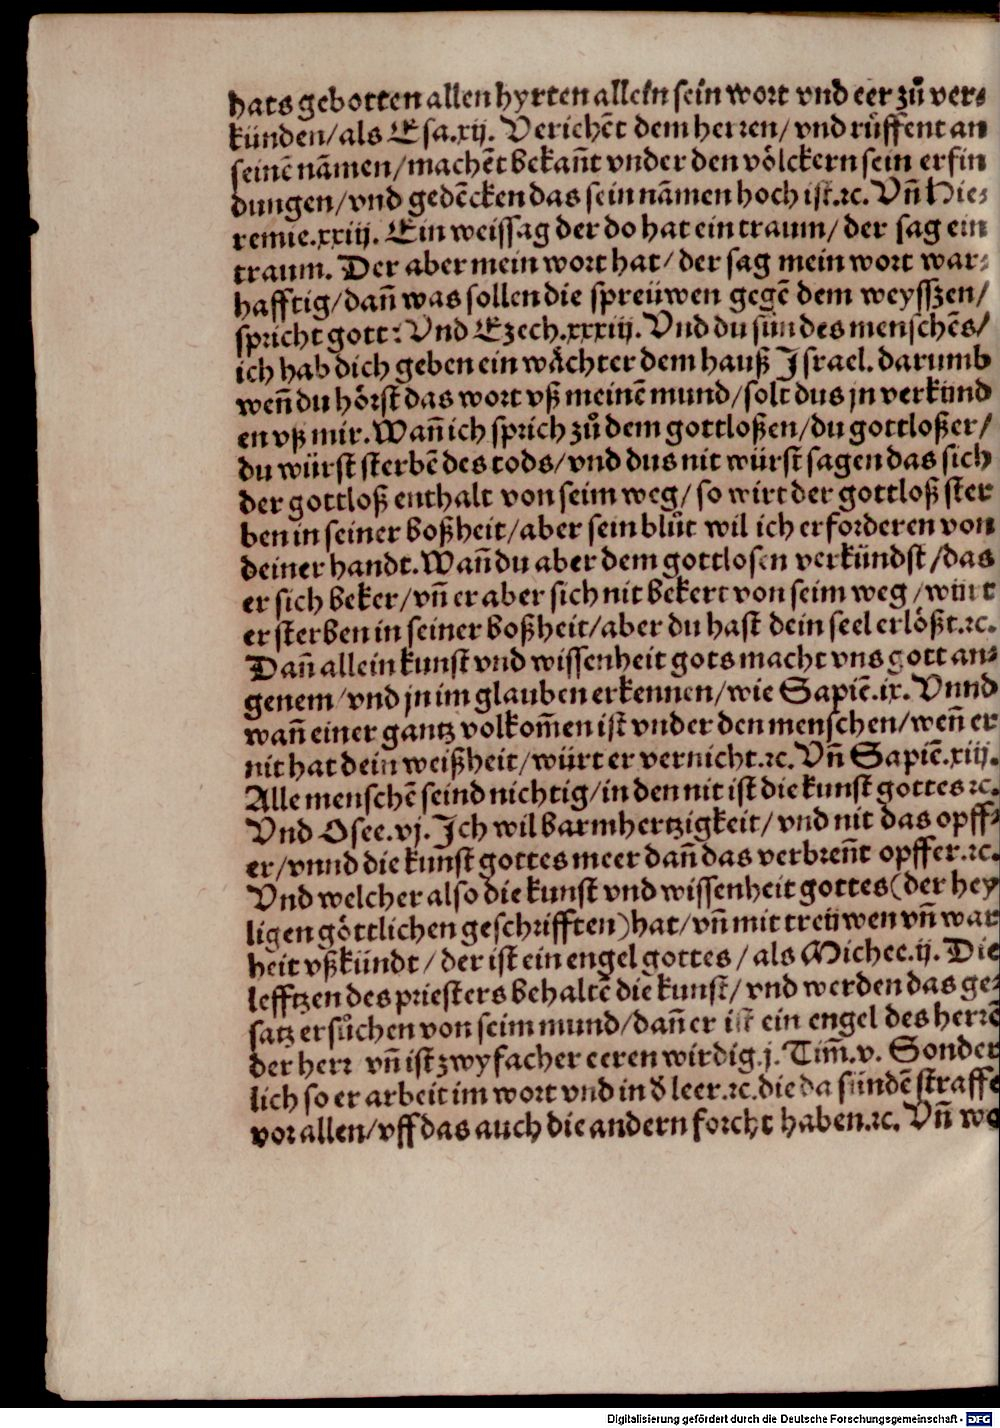 hats gebotten allen hyrten allein sein wort vnd eer zů ver⸗
künden/als Esa.xij. Verichēt dem herꝛen/ vnd rüffent an
seinē nāmen/machēt bekañt vnder den völckern sein erfin
dungen/vnd gedēcken das sein nāmen hoch ist.ꝛc. Vñ Hie⸗
remie.xxiij. Ein weissag der do hat ein traum/ der sag ein
traum. Der aber mein wort hat/ der sag mein wort war⸗
hafftig/dañ was sollen die spreüwen gegē dem weysszen/
spricht gott: Vnd Ezech.xxxiij. Vnd du sün des menschēs/
ich hab dich geben ein wächter dem hauß Israel. darumb
weñ du hörst das wort vß meinē mund/solt dus jn verkünd
en vß mir. Wañ ich sprich zů dem gottloßen/du gottloßer/
du würst sterbē des tods/vnd dus nit würst sagen das sich
der gottloß enthalt von seim weg/ so wirt der gottloß ster
ben in seiner boßheit/aber sein blůt wil ich erforderen von
deiner handt. Wañ du aber dem gottlosen verkündst/das
er sich beker/vñ er aber sich nit bekert von seim weg/würt
er sterben in seiner boßheit/aber du hast dein seel erlößt.ꝛc.
Dañ allein kunst vnd wissenheit gots macht vns gott an⸗
genem/vnd jn im glauben erkennen/wie Sapiē.ix. Vnnd
wañ einer gantz volkom̃en ist vnder den menschen/weñ er
nit hat dein weißheit/würt er vernicht.ꝛc. Vñ Sapiē.xiij.
Alle menschē seind nichtig/in den nit ist die kunst gottes ꝛc.
Vnd Osee.vj. Ich wil barmhertzigkeit/ vnd nit das opff⸗
er/vnnd die kunst gottes meer dañ das verbreñt opffer.ꝛc.
Vnd welcher also die kunst vnd wissenheit gottes(der hey
ligen göttlichen geschrifften)hat/vñ mit treüwen vñ war
heit vßkündt/ der ist ein engel gottes/ als Michee.ij. Die
lefftzen des priesters behaltē die kunst/ vnd werden das ge⸗
satz ersůchen von seim mund/dañ er ist ein engel des herꝛē
der herꝛ vñ ist zwyfacher eeren wirdig.j. Tim̃.v. Sonder
lich so er arbeit im wort vnd in d̕ leer.ꝛc.die da sündē straffe
vor allen/vff das auch die andern forcht haben.ꝛc. Vñ wo
Digitalisierung gefördert durch die Deutsche Forschungsgemeinschaft - DFG